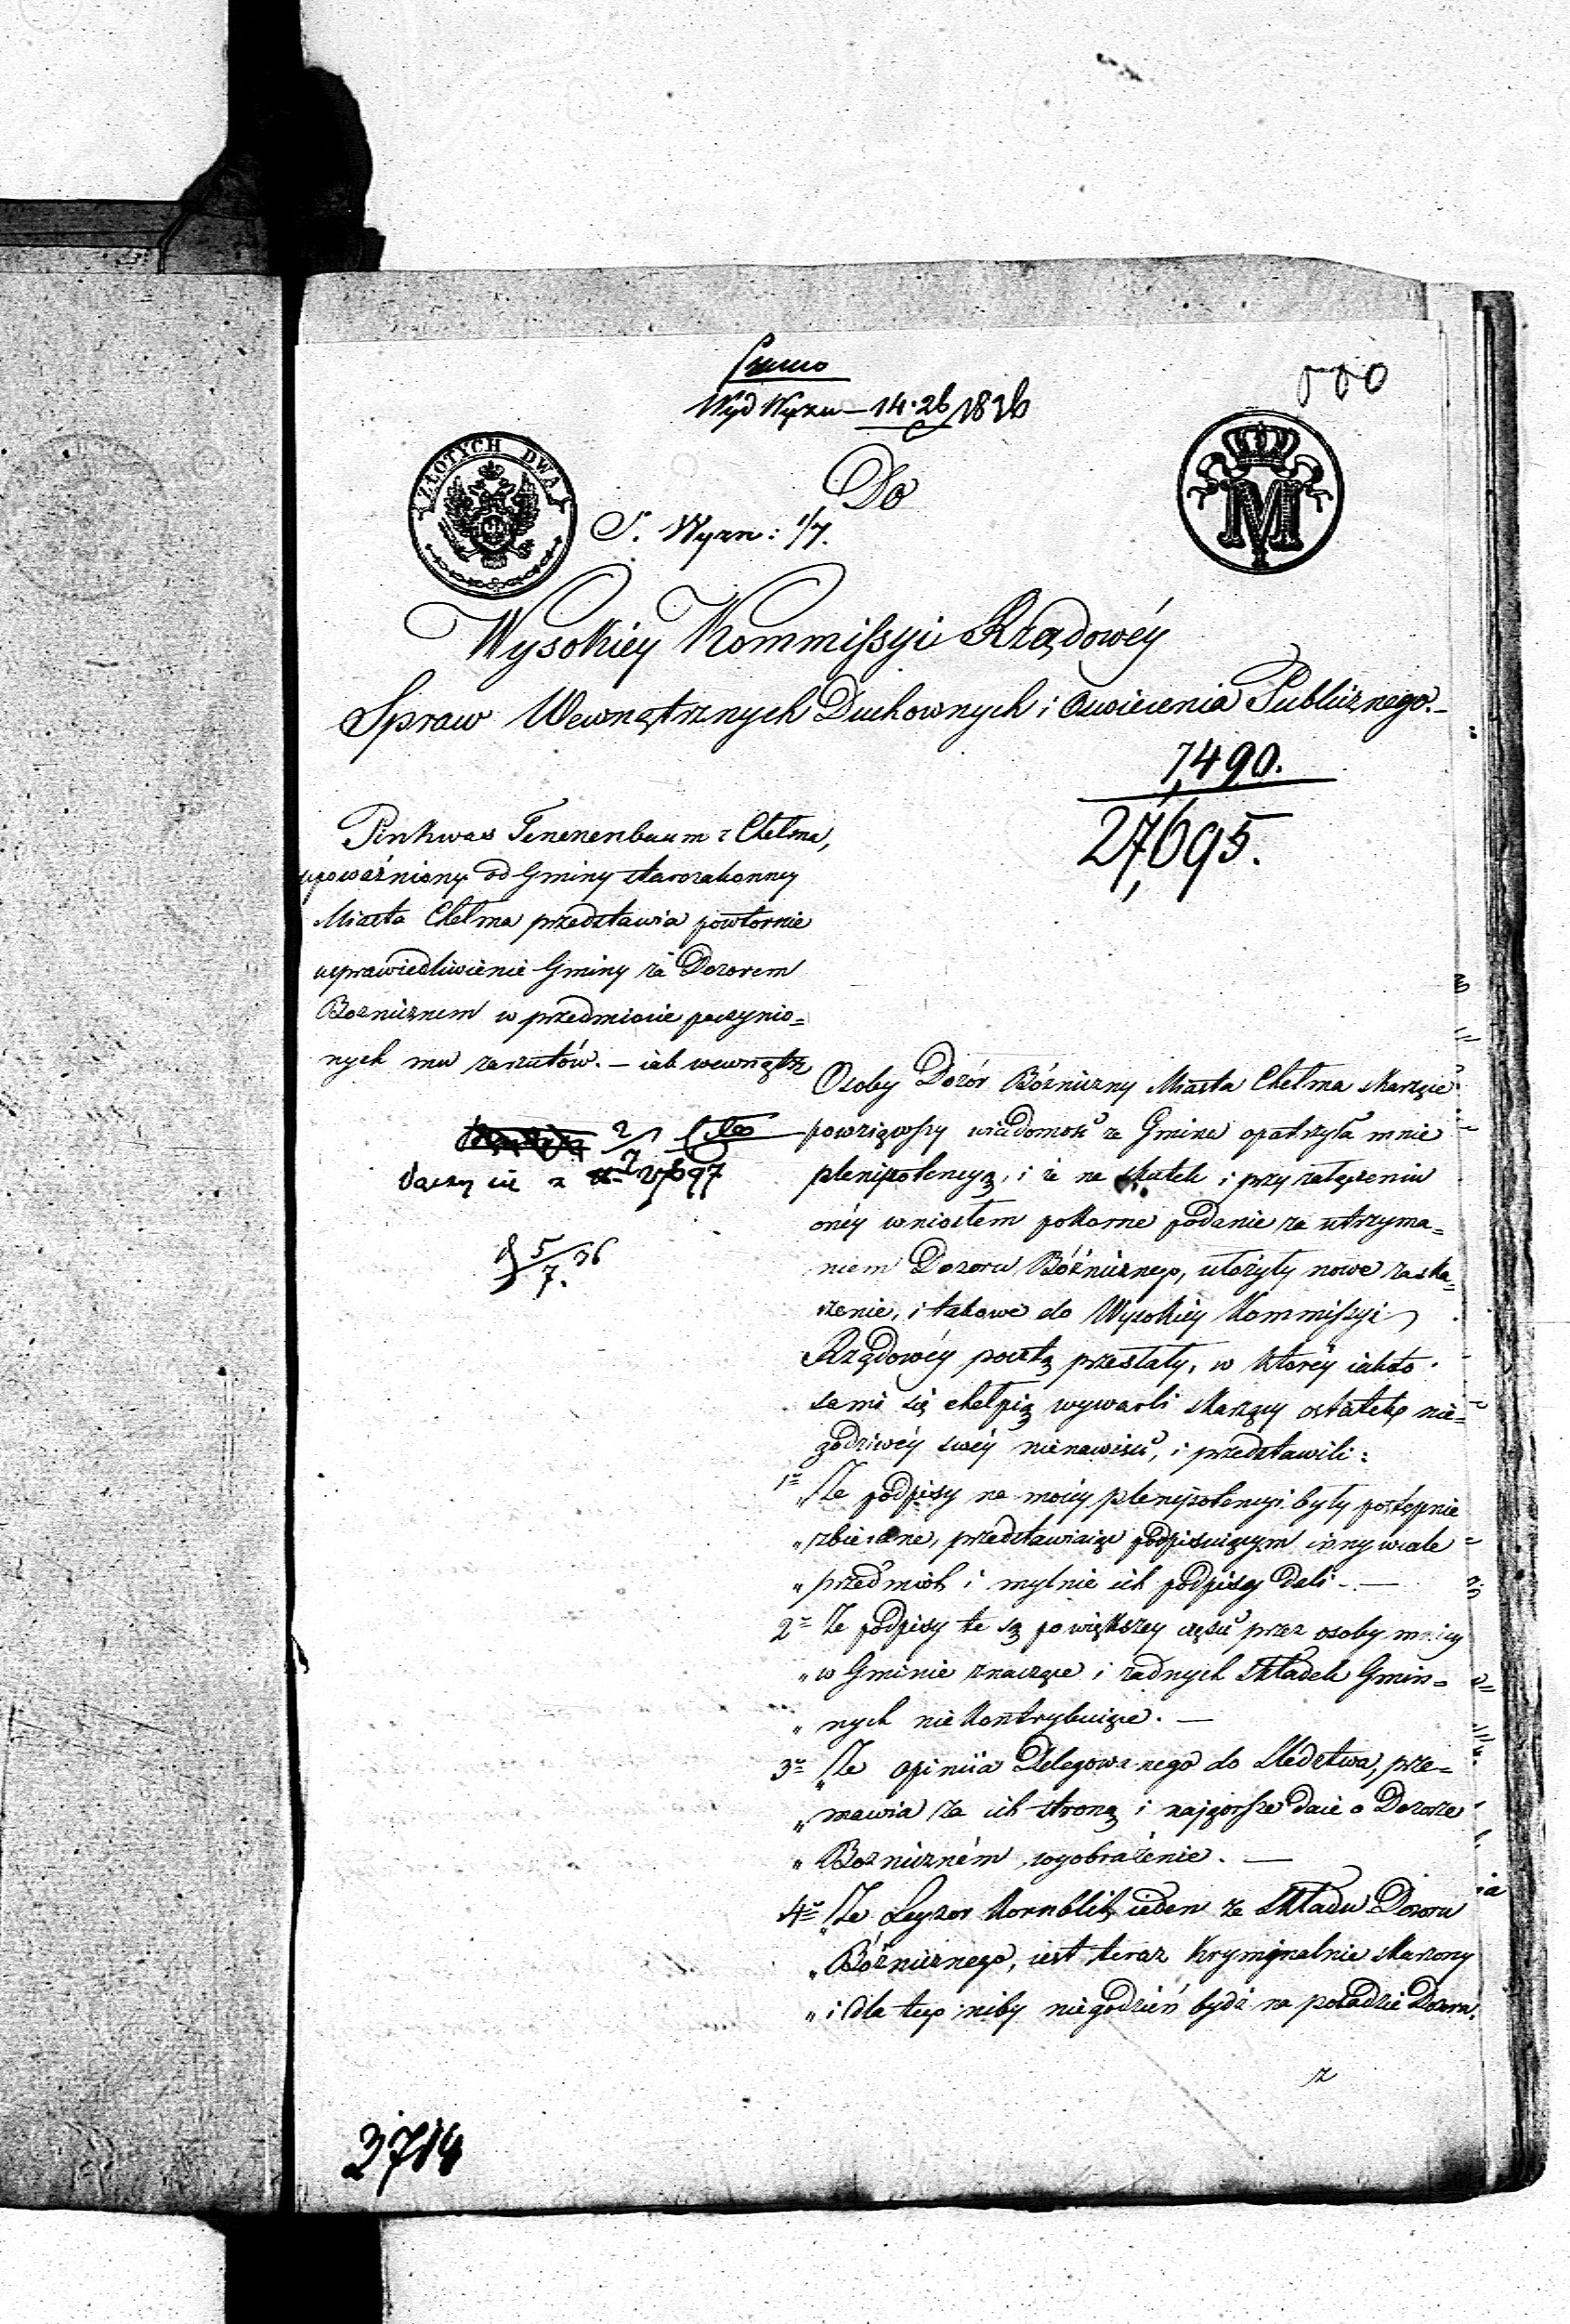 Wyd Wyzn — 14.26 1836
ZŁOTYCH DWA
M
Do
S. Wyzn: 1/7.
Wysokiey Kommissyi Rządowéy
Spraw Wewnętrznych Duchownych i Oswiecenia Publicznego.
7,490.
27,695.
Pinkwas Tenenenbaum z Chełma,
upoważniony od Gminy starozakonney
Miasta Chełma przedstawia powtornie
usprawiedliwienie Gminy za Dozorem
Bozniczném w przedmiocie poczynio=
nych mu zarzutów. — iak wewnątrz
Osoby Dozór Bózniczny Miasta Chełma skarzące
powziąwszy wiadomość ze Gmina opatrzyła mnie
plenipotencyą, i że na skutek i przy załączeniu
onéy wniosłem pokorne podanie za utrzyma=
niem Dozoru Bóźnicznego, ułożyły nowe zaska=
rzenie, i takowe do Wysokiey Kommissyi
Rządowéy pocztą przesłały, w ktoréy iakoto
sami się chełpią wywarli skarzący ostatek nie=
godziwéy swéy nienawiści, i przedstawili:
1e „Że podpisy na moiéy plenipotencyi były postępnie
„zbierane, przedstawiaiąc podpisuiącym inny wcale
„przedmiot i mylnie ich podpisy dali. —
2e Że podpisy te są po większey części przez osoby mniey
„w Gminie znaczące i żadnych składek Gmin=
„nych nie kontrybuiące. —
3e „Że opiniia Delegowanego do Sledztwa, prze=
„mawia za ich stroną i najgorsze daie o Dozorze
„Bozniczném wyobrażenie. —
4e „Że Leyzor Kornblit ieden ze składu Dozoru
„Bóźnicznego, iest teraz kryminalnie skarzony
„i dla tego niby niegodzień bydź na posadzie Dozoru.
łączy się z 27697
5/7. 36
z
3714